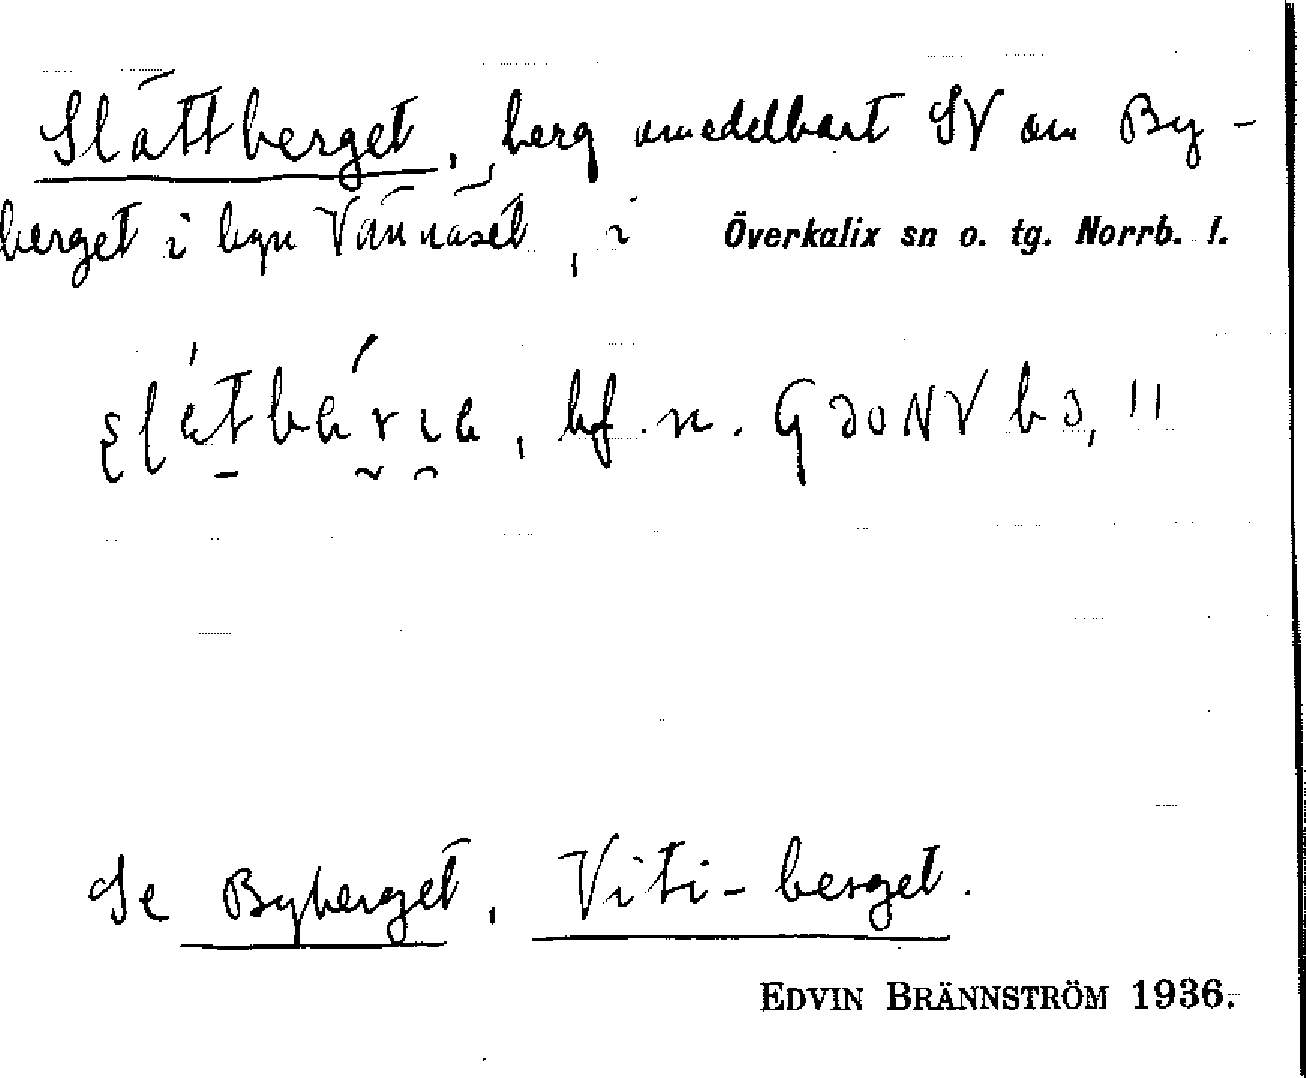 Slättberget, berg omedelbart SV om By-
berget i byn Vännäset, i Överkalix sn o. tg. Norrb. l.
bf. n.
Se Byberget, Viti-berget.
EDVIN BRÄNNSTRÖM 1936.